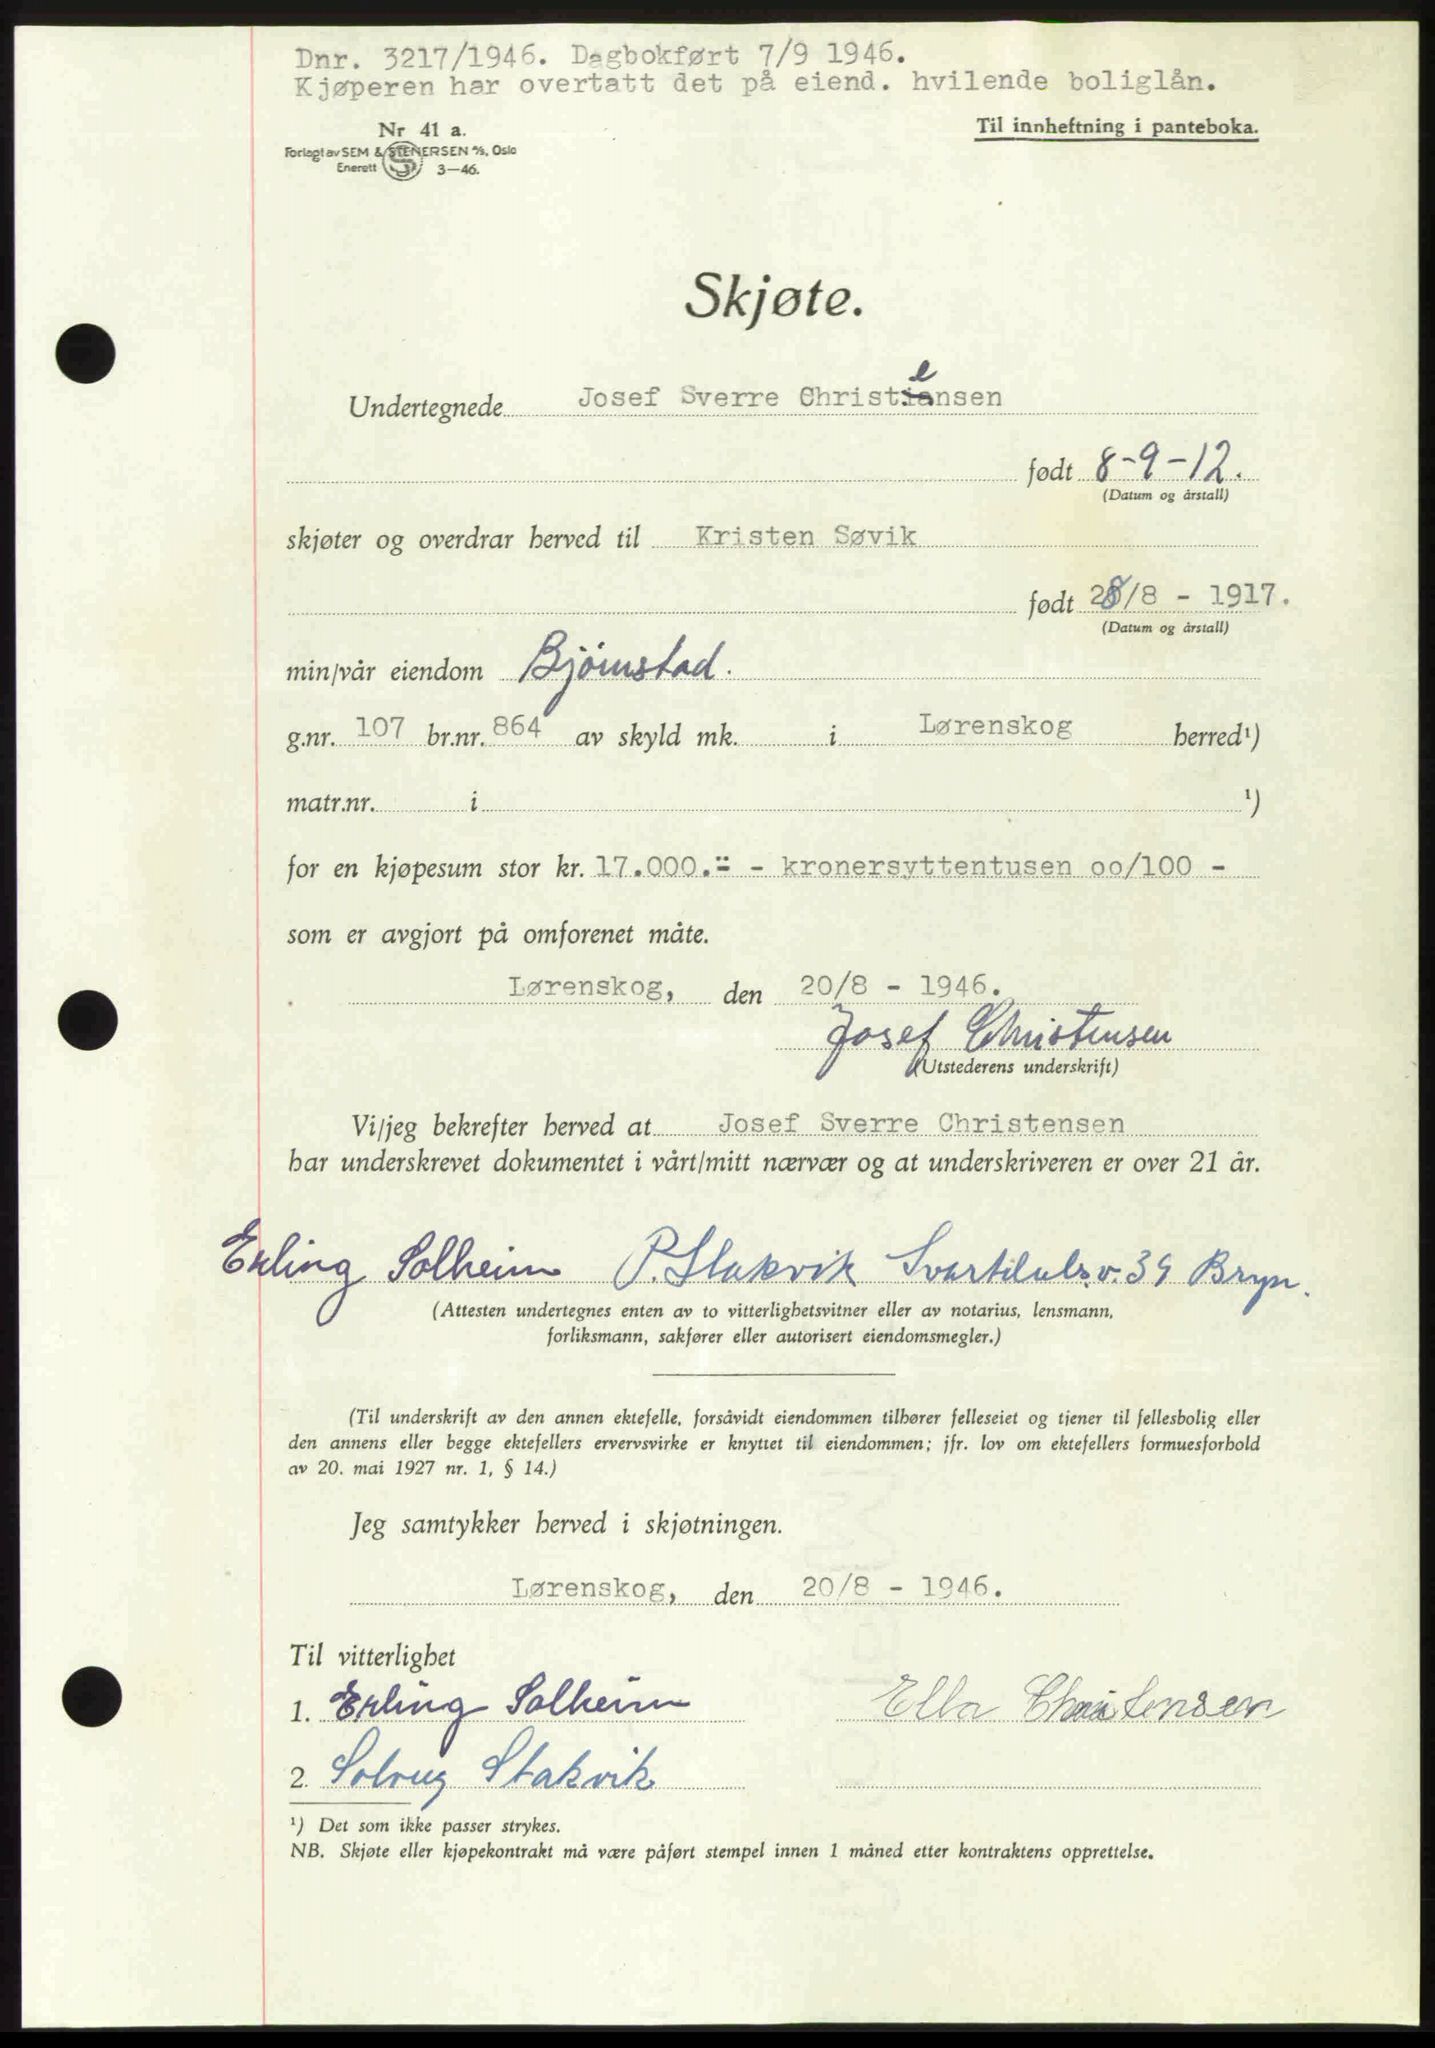 Dnr. 3217/1946. Dagbokført 7/9 1946.
Kjøperen har overtatt det på eiend. hvilende boliglån.
Nr 41 a.
Til innheftning i panteboka.
Forlagt av SEM & STENERSEN A/S, Oslo
Enerett 3—46.
Skjøte.
Undertegnede Josef Sverre Christensen
født 8-9-12.
(Datum og årstall)
skjøter og overdrar herved til Kristen Søvik
født 28/8 - 1917.
(Datum og årstall)
min/vår eiendom Bjørnstad.
g.nr. 107 br.nr. 864 av skyld mk. i Lørenskog herred¹)
matr.nr. i ¹)
for en kjøpesum stor kr. 17.000.- - kronersyttentusen oo/100 -
som er avgjort på omforenet måte.
Lørenskog, den 20/8 - 1946.
Josef Christensen
(Utstederens underskrift)
Vi/jeg bekrefter herved at Josef Sverre Christensen
har underskrevet dokumentet i vårt/mitt nærvær og at underskriveren er over 21 år.
Erling Solheim P. Stakvik 39 Bryn.
(Attesten undertegnes enten av to vitterlighetsvitner eller av notarius, lensmann,
forliksmann, sakfører eller autorisert eiendomsmegler.)
(Til underskrift av den annen ektefelle, forsåvidt eiendommen tilhører felleseiet og tjener til fellesbolig eller
den annens eller begge ektefellers ervervsvirke er knyttet til eiendommen; jfr. lov om ektefellers formuesforhold
av 20. mai 1927 nr. 1, § 14.)
Jeg samtykker herved i skjøtningen.
Lørenskog, den 20/8 - 1946.
Til vitterlighet
1. Erling Solheim Ella Christensen
2. Solvug Stakvik
¹) Det som ikke passer strykes.
NB. Skjøte eller kjøpekontrakt må være påført stempel innen 1 måned etter kontraktens opprettelse.